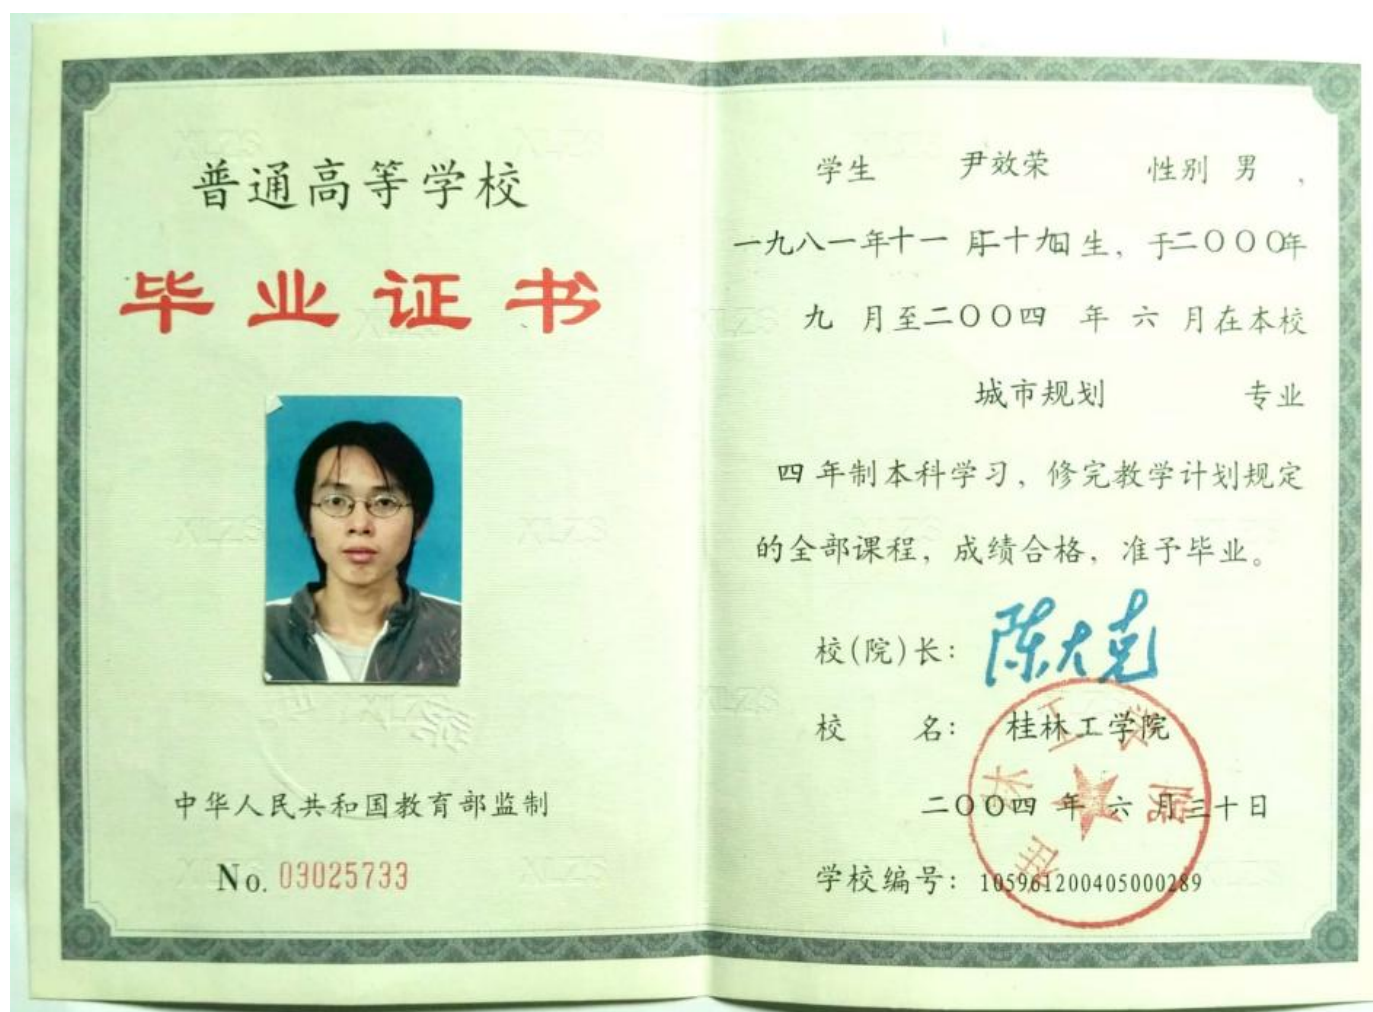 普通高等学校
毕业证书
中华人民共和国教育部监制
No. 03025733
学生 尹效荣 性别 男 ,
一九八一年十一月二十九日生, 于二〇〇〇年
九 月至二〇〇四 年 六 月在本校
城市规划 专业
四 年制本科学习, 修完教学计划规定
的全部课程, 成绩合格, 准予毕业。
校(院)长: 陈大克
校 名: 桂林工学院
二〇〇四 年 六 月三十日
学校编号: 105961200405000289
桂林工学院
XLZS